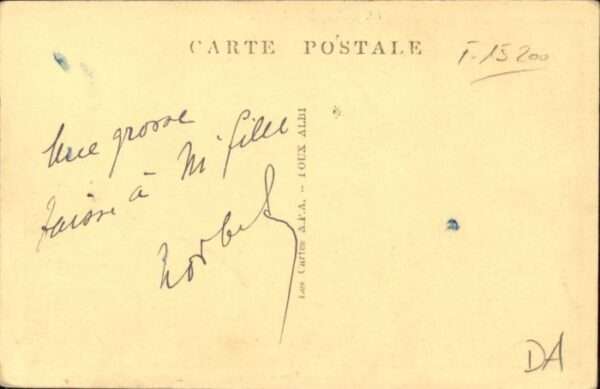 CARTE POSTALE
T-15200
Une grosse
baise à Mr Gilles
Norbert
Les Cartes A.P.A. - POUX ALBI
DA